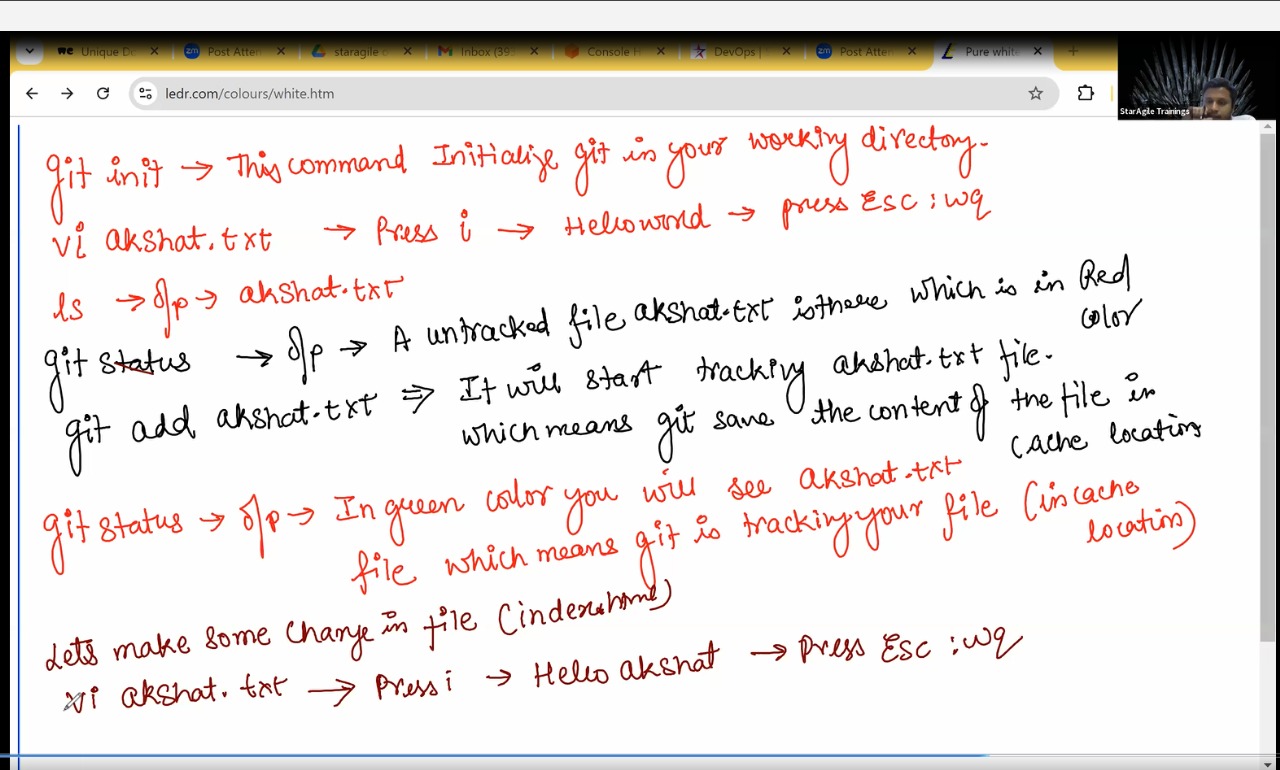 we Unique Do
zm Post Atten
staragile c
Inbox (39
Console H
DevOps |
zm Post Atten
Pure white
ledr.com/colours/white.htm
StarAgile Trainings
git init → This command Initialize git in your working directory.
vi akshat.txt → Press i → Hello world → press Esc :wq
ls → o/p → akshat.txt
git status → o/p → A untracked file akshat.txt is there which is in Red
color
git add akshat.txt ⇒ It will start tracking akshat.txt file.
which means git save the content of the file in
cache location
git status → o/p → In green color you will see akshat.txt
file which means git is tracking your file (in cache
location)
Lets make some change in file (index.html)
vi akshat.txt → Press i → Hello akshat → Press Esc :wq